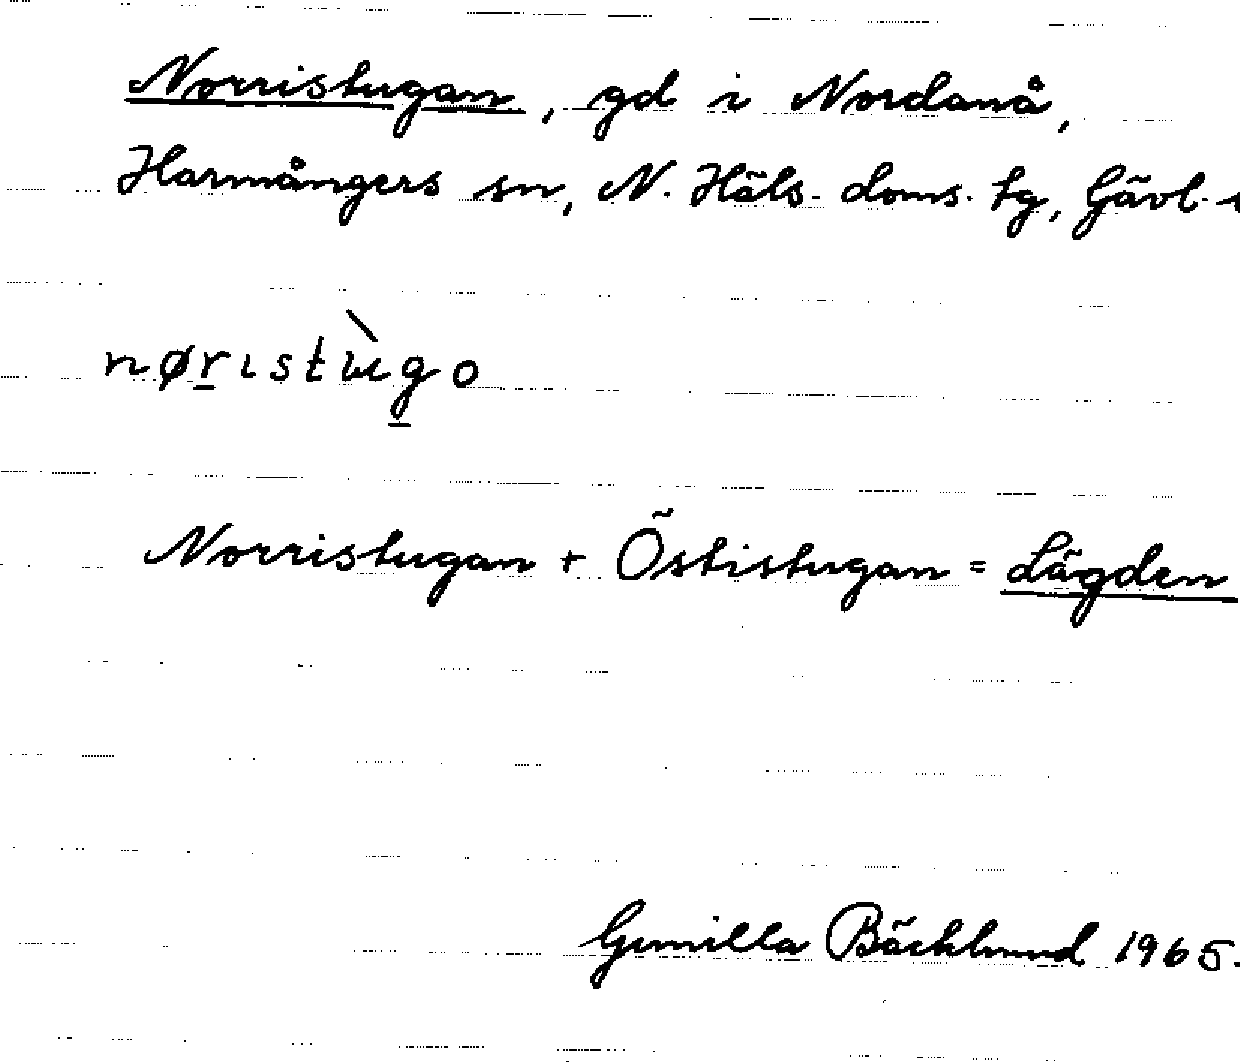 Norristugan, gd i Nordanå,
Harmångers sn, N. Häls. doms. tg, Gävl.
nørɩstùgo
Norristugan + Östistugan = Lägden
Gunilla Bäcklund 1965.